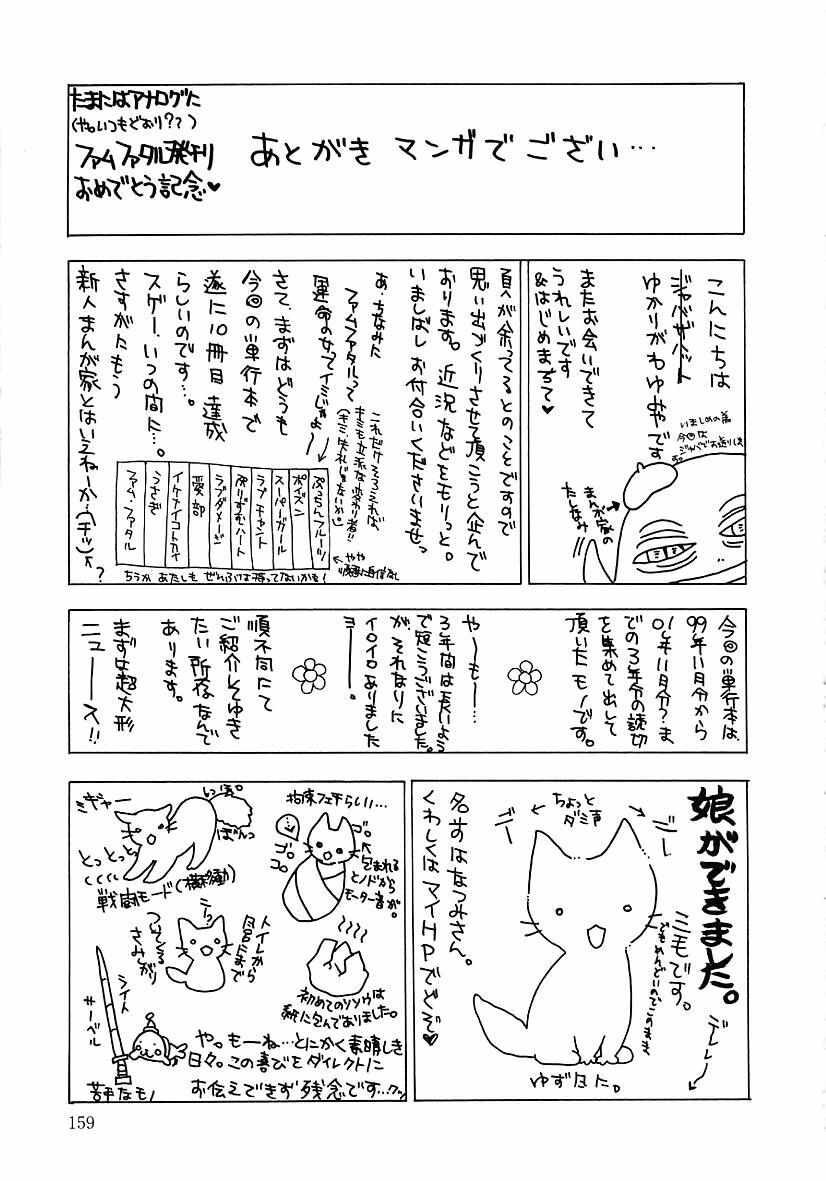 たまにはアナログに
(や。いつもどおり?て)
ファムファタル発刊
おめでとう記念♥
あとがき マンガでござい…
こんにちは
ジャバザハット
ゆかりがわゆみやです
いましめの為
今回は
ジャバでお送りします。
またお会いできて
うれしいです
&はじめまちて♥
まんが家の
たしなみ
頁が余ってるとのことですので
思い出づくりさせて頂こうと企んで
おります。近況などをもりっと。
いましばしお付合いくださいませっ
あ、ちなみに
ファムファタルって
運命の女ってイミじゃよ〜
これだけそろえれば
キミも立派な変わり者!!
(キミ失礼じゃないか。)
さて、まずはどうも
今回の単行本で
遂に10冊目達成
らしいのです…。
スゲー、いつの間に…。
さすがにもう
新人まんが家とはいえねーか…(チッ)
ぷっちんフルーツ
ポイズン
スーパーガール
ラブチャント
ぷりずむハート
ラブダメージ
愛部
イケナイコトカイ
うさぎ
ファム・ファタル
←やや
順番に自信なし
ちうかあたしもぜんぶは持ってないかも!
今回の単行本は、
99年11月分から
01年11月分?ま
での3年分の読切
を集めて出して
頂いたモノです。
や〜も〜…
3年間は長いよう
で短こうございました。
が、それなりに
イロイロありました
ヨーーー。
順不同にて
ご紹介してゆき
たい所存なんで
あります。
まずは超大形
ニューース!!
娘ができました。
ミモです。
でもめんどいのでこのまま
デレレー
ちょっと
ダミ声
デー
デー
名まえはなつみさん。
くわしくはマイHPでどぞ♥
ゆずたに。
拘束フェチらしい…
ゴロ。
ゴロ
ゴロ
包まれる
とノドから
モーター音が。
ミギャー
しっぽ。
ぼんっ
とっとっとっ
戦闘モード(横移動)
トイレから
尽呂たまで
ついてくる
さみしがり
初めてのソソウは
紙に包んでありました。
ライト
サーベル
苦手なモノ
や。もーね…とにかく素晴しき
日々。この喜びをダイレクトに
お伝えできず残念です…クッ
159